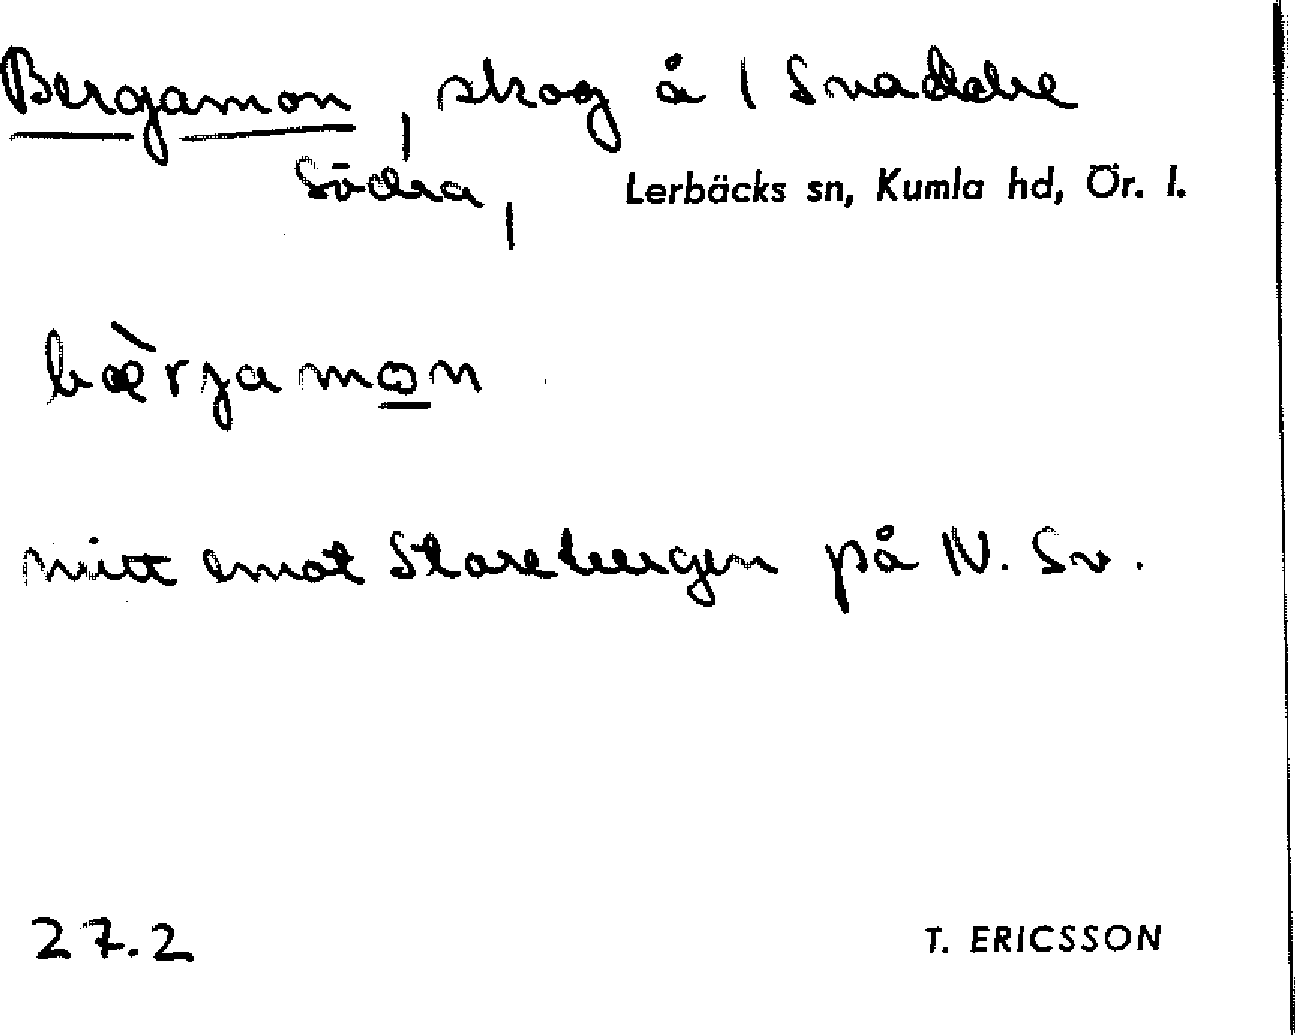 Bergamon, skog å 1 Snadebe
Södra,
Lerbäcks sn, Kumla hd, Ör. l.
bæ̀rjamon
mitt emot Starebergen på N. Sv.
27.2
T. ERICSSON